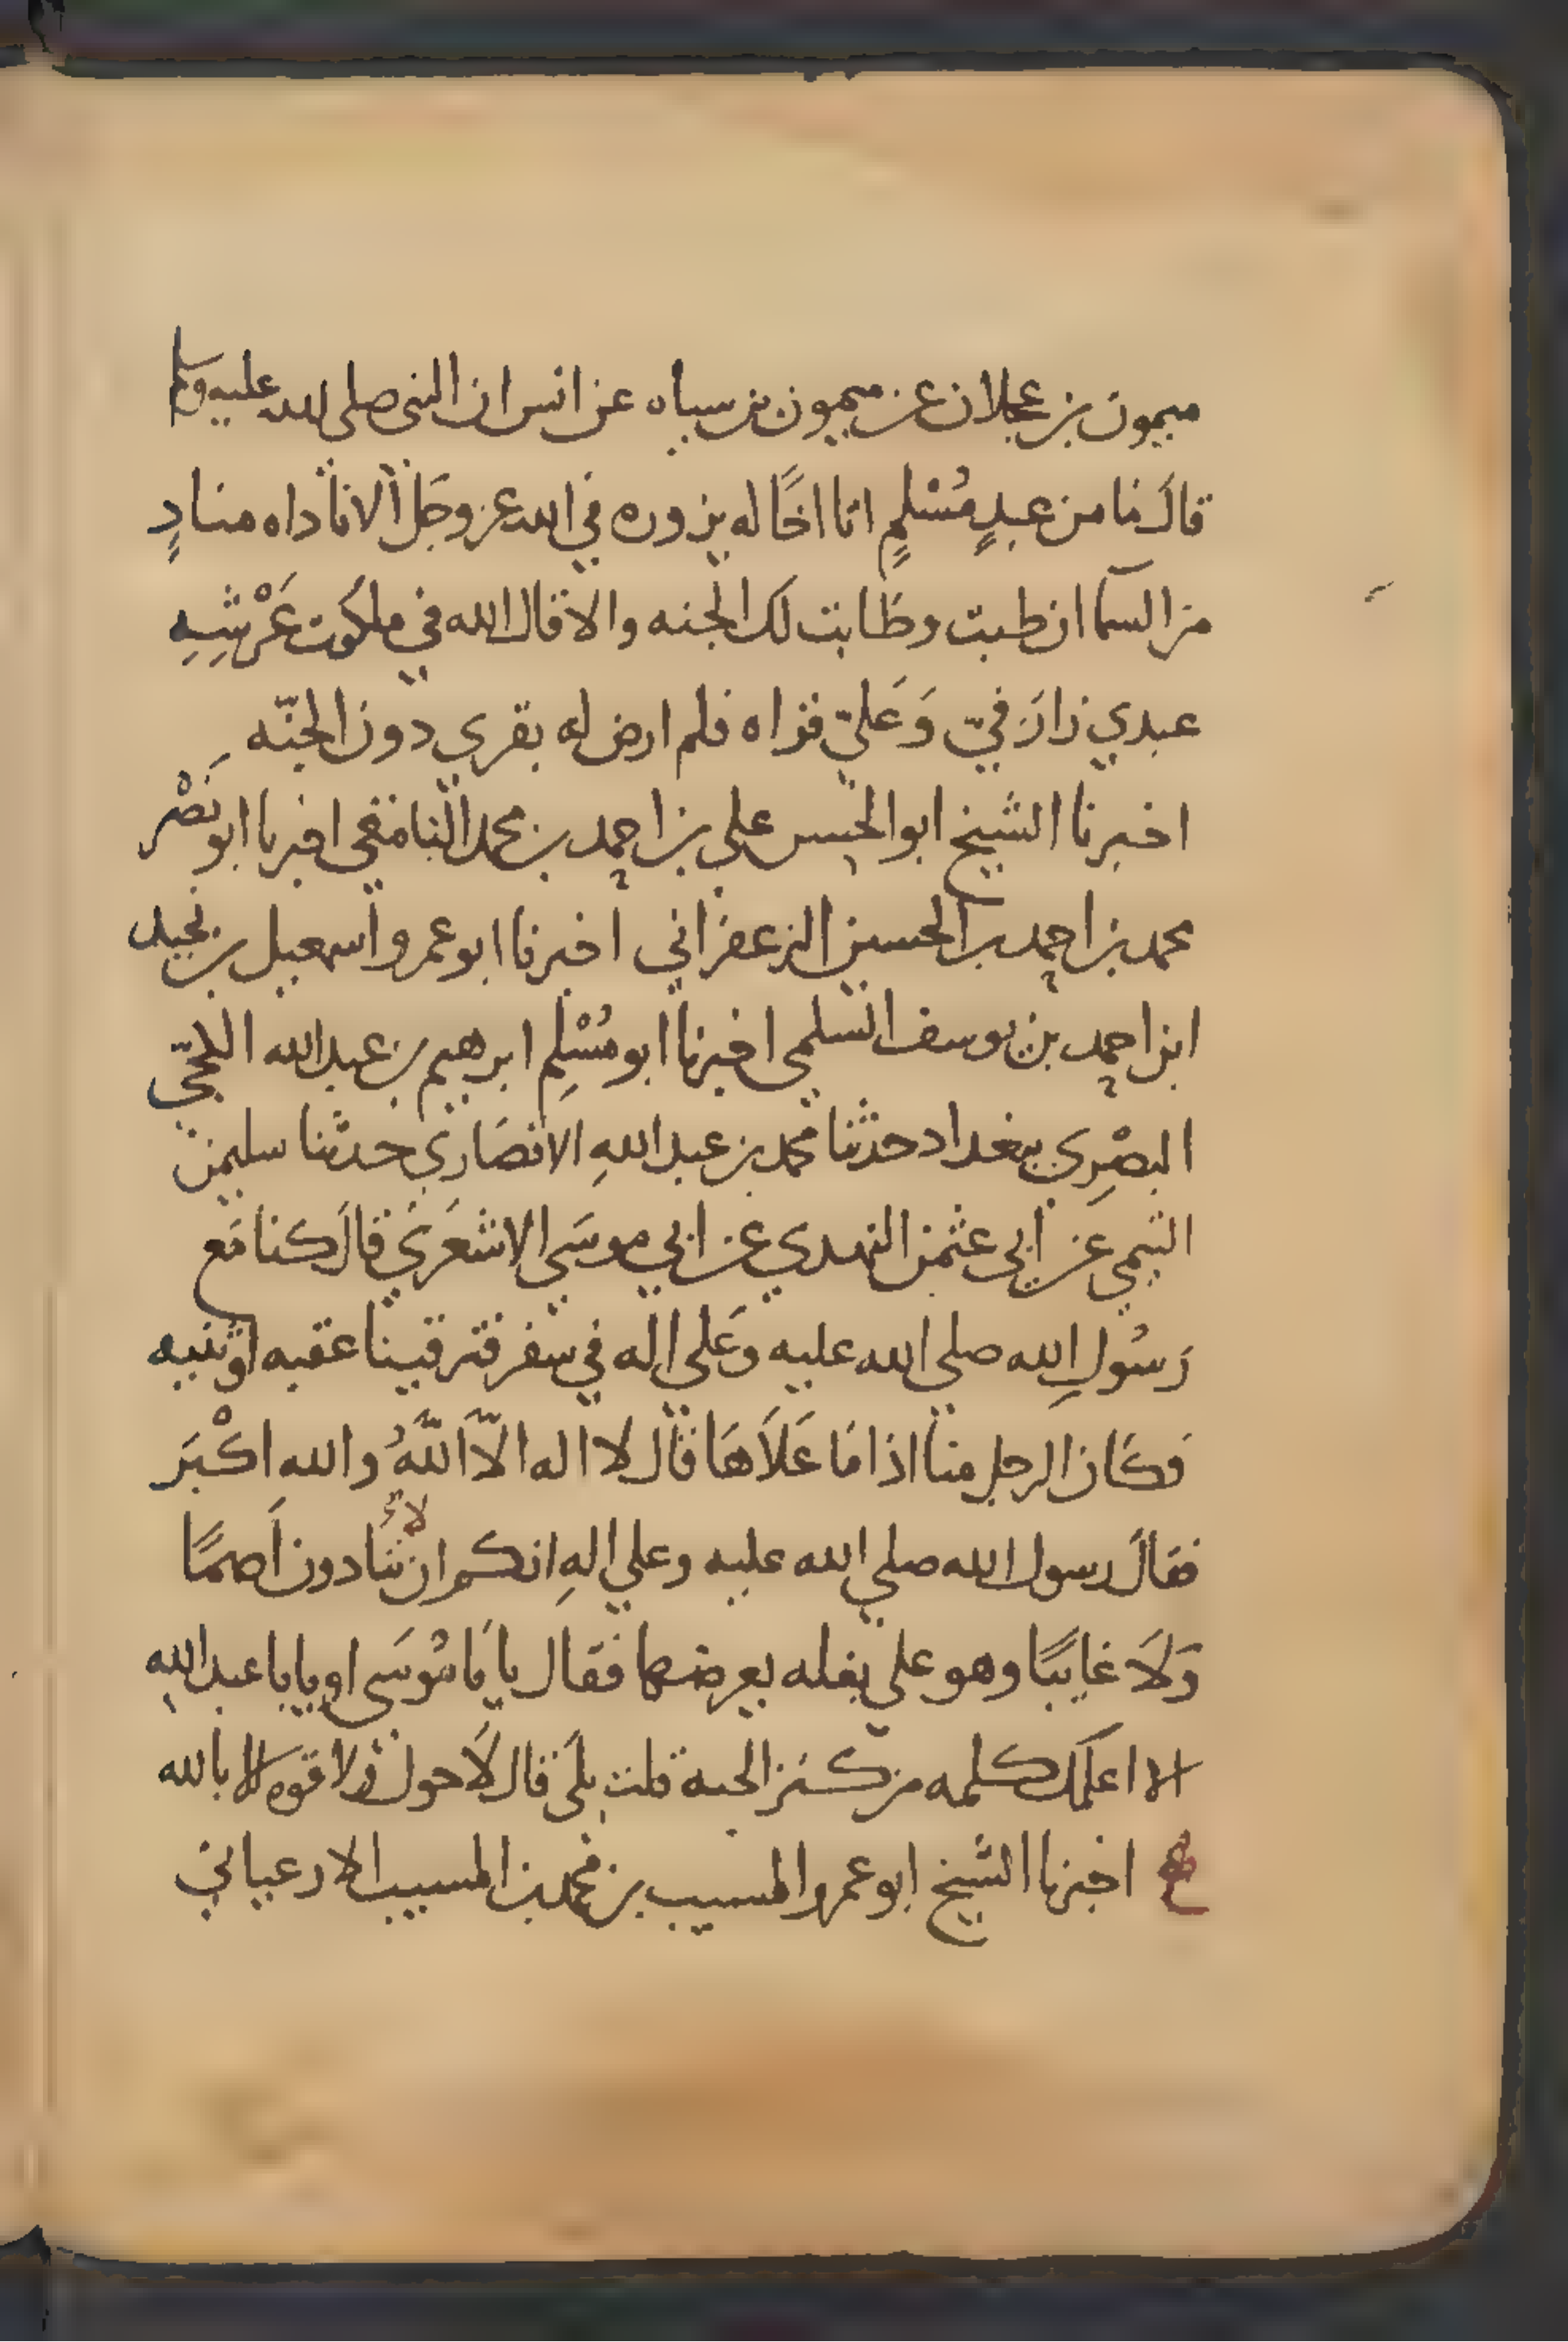 ميمون بن عجلان عن ميمون بن سياه عن انس ان النبي صلى الله عليه وسلم
قالَ مَا من عبدٍ مُسْلمٍ اتا اخًا له يزوره في الله عز وجَل الا ناداه منادٍ
من السما ان طبت وطَابت لك الجنه والا قال الله في ملكُوت عَرْشِهِ
عبدي زارَ فيّ وَعَليّ قراه فلم ارض له بقرى دون الجنّه
اخبرنا الشيخ ابو الحسن علي بن احمد بن محمد اخبرنا ابو نَصْر
محمد بن احمد بن الحسين الزعفراني اخبرنا ابو عمرو اسمعيل بن نجيد
ابن احمد بن يوسف السلمي اخبرنا ابو مُسْلِم ابرهيم بن عبد الله الكجّي
البصْرِي ببغداد حدثنا محمد بن عبد اللهِ الانصَاري حدثنا سليمن
التيمي عن ابي عثمن النهدي عن ابي موسَى الاشعَري قالَ كنا مَع
رَسُولِ اللهِ صلى الله عليه وعَلى اله في سفر فترقينا عقبه او ثنيه
فكَان الرجل منا اذا مَا عَلَاهَا قال لا اله الّا اللّهُ والله اكْبَر
فقالَ رسول الله صلى الله عليه وعلى الهِ انكم ان لا تنادون اَصمًا
وَلَا غايبًا وهو على بغله يعرضها فقال يا بَا مُوسَى او يا با عبد اللهِ
الا اعلمك كلمه من كنز الجنه قلت بلَى قال لَا حول ولا قوه الا بالله
اخبرنا الشيخ ابو عمرو المسيب بن محمد بن المسيب الارغياني